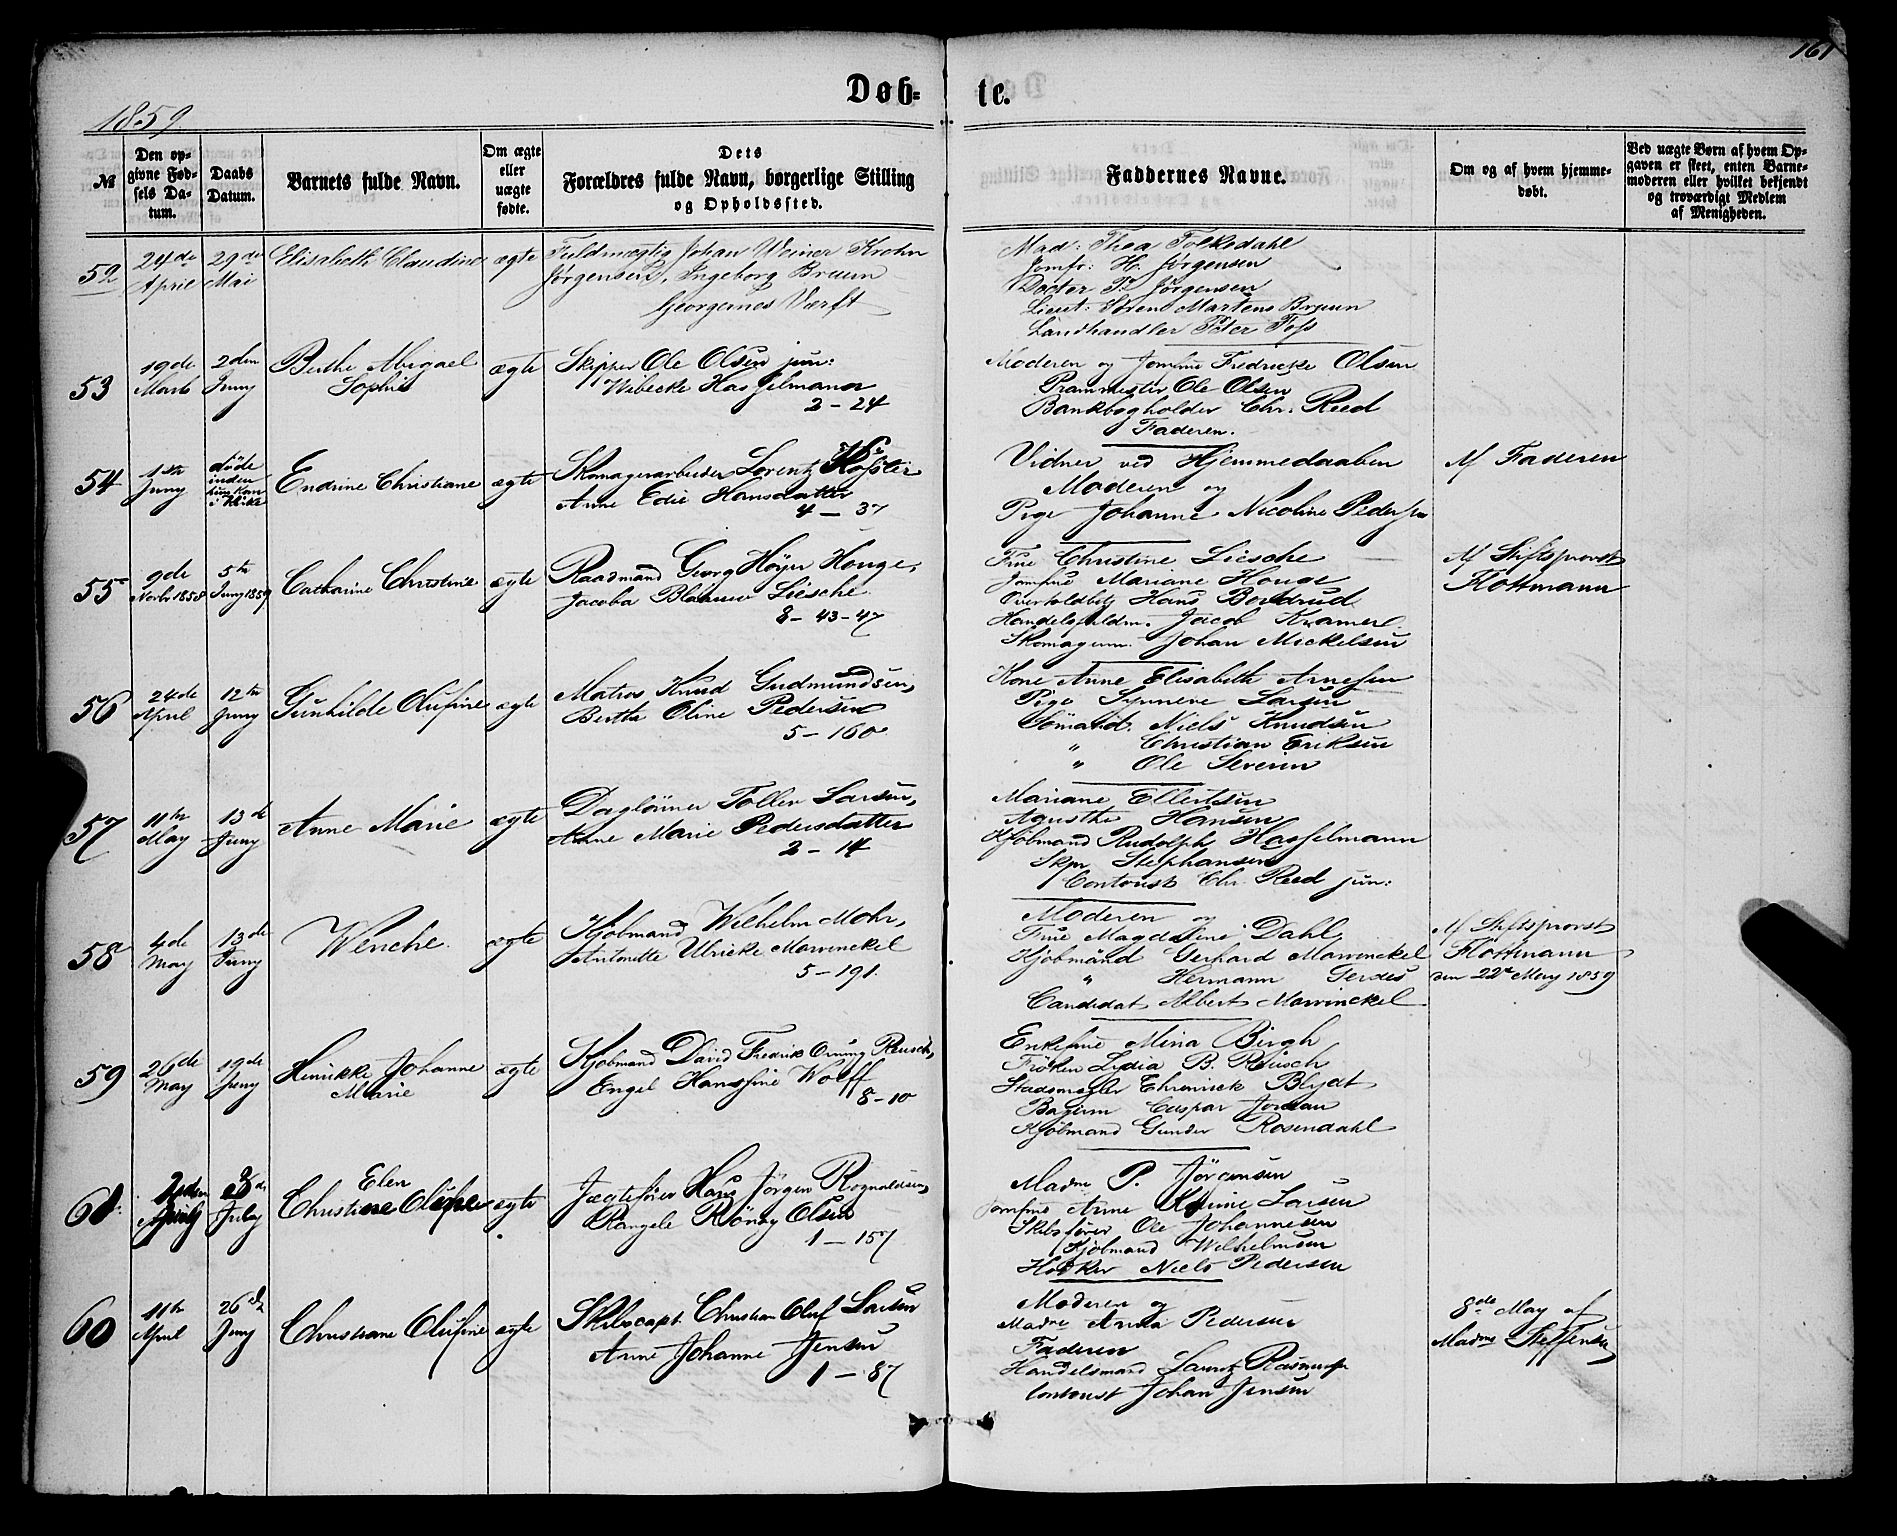 161
Døb-
te.
1859
№
Den op-
givne Fød-
sels Da-
tum.
Daabs
Datum.
Barnets fulde Navn.
Om ægte
eller
uægte
fødte.
Dets
Forældres fulde Navn, borgerlige Stilling
og Opholdssted.
Faddernes Navne.
Om og af hvem hjemme-
døbt.
Ved uægte Børn af hvem Op-
gaven er skeet, enten Barne-
moderen eller hvilket bekjendt
og troværdigt Medlem
af Menigheden.
52
24de
April
29de
Mai
Elisabeth Claudine
ægte
Fuldmægtig Johan Weiner Krohn
Jørgensen, Ingeborg Bruun
Georgernes Værft
Mad: Thea Folkedahl
Jomfr: H. Jørgensen
Doctor P. Jørgensen
Lieut: Sørens Martens Bruun
Landhandler Peter Foss
53
19de
Marts
2den
Juny
Berthe Abigael
Sophie
ægte
Skipper Ole Olsen jun:
Wibecke Hasselmann
2-24
Moderen og Jomfrue Fredrikke Olsen
Prammester Ole Olsen
Bankbogholder Chr. Reed
Faderen.
54
1ste
Juny
døde
inden
hun kom
i Kirke
Endrine Christiane
ægte
Skomagerarbeider Lorentz
Anne Edie Hansdatter
4-37
Vidner ved Hjemmedaaben
Moderen og
Pige Johanne Nicoline Pedersen
Af Faderen
55
9de
Novbr 1858
5te
Juny 1859
Catharine Christine
ægte
Raadmand Georg Høyer Houge,
Jacoba Blauuw Liesche
8-43-47
Frue Christine Liesche
Jomfrue Mariane Houge
Overtoldbetj Hans Bordrud
Handelsfuldm. Jacob Kramer
Skomagerm. Johan Mickelsen
Af Stiftsprovst
Flottmann
56
24de
April
12te
Juny
Gunhilde Olufine
ægte
Matros Knud Gudmundsen,
Berthe Oline Pedersen
5-160
Kone Anne Elisabeth Arnesen
Pige Synneve Larsen
Sømand Niels Knudsen
" Christian Eriksen
" Ole Severin
57
11te
May
13de
Juny
Anne Marie
ægte
Dagløнner Tollev Larsen,
Anne Marie Pedersdatter
2-14
Mariane Ellertsen
Aguste Hansen
Kjøbmand Rudolph Hasselmann
Skpr Stephansen
Contorist Chr. Reed jun:
58
4de
May
13de
Juny
Wenche
ægte
Kjøbmand Wilhelm Mohr,
Antonette Ulricke Mowinckel
5-191.
Moderen og
Frue Magdalene Dahl
Kjøbmand Gerhard Mowinckel
" Hermann Gerdes
Candidat Albert Mowinckel
Af Stiftsprovst
Flottmann
den 22de May 1859
59
26de
May
19de
Juny
Henrikke Johanne
Marie
ægte
Kjøbmand David Fredrik Reusch,
Engel Hansine Wolff
8-10
Enkefrue Mina Birgh
Frøken Lydia B. Reusch
Stadsmægler Ehrenrick Blydt
Bagerm Caspar Jordan
Kjøbmand Gunder Rosendahl
61.
April
3de
July
Elen
Christiane Olufine
ægte
Jægtefører Hans Jørgen Rognaldsen,
Rangele Rønøy Olsen
1-157
Madme P. Jørgensen
Jomfrue Anne Karine Larsen
Skibsfører Ole Johannesen
Kjøbmand Wilhelmsen
Høker Niels Pedersen
60
11te
April
26de
Juny
Christiane Olufine
ægte
Skibscapt. Christian Oluf Larsen
Anne Johanne Jensen
1-87
Moderen og
Madme Anna Pedersen
Faderen
Handelsmand Lauritz
Contorist Johan Jensen
8de May af
Madme Steffensen